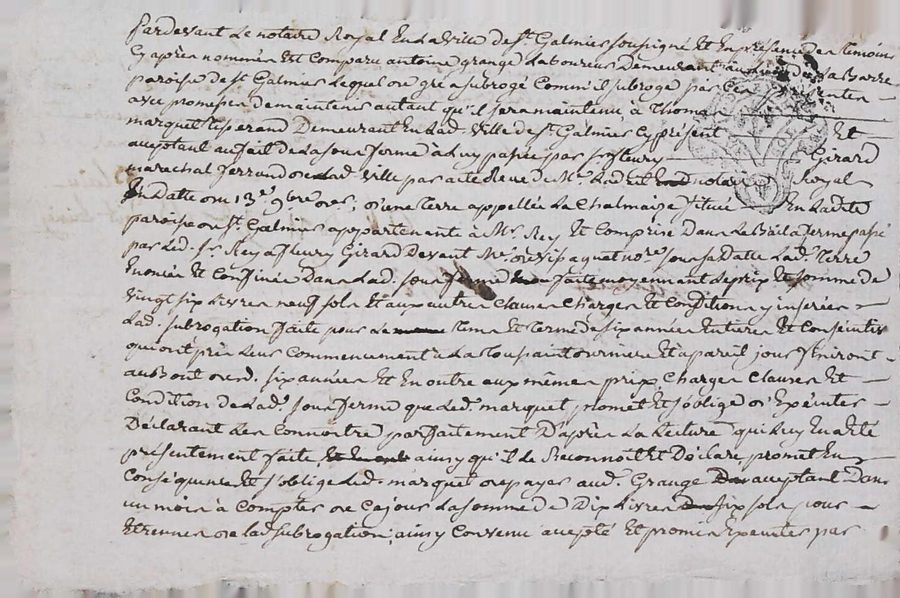 Pardevant Le notaire Royal En La ville de st. Galmier soussigné Et En présence des témoins
Cy après nommés Est Comparu antoine grange Laboureur Demeurant au La Barre
paroisse de st. Galmier Lequel de gré a subrogé Comme il subroge par Ces présentes
avec promesse de maintenir autant qu'il sera maintenu, à Thomas
marquet tisserand Demeurant En Lad. ville de st. Galmier Cy présent Et
acceptant au fait de La sous ferme à Luy passée par sr fleury Girard
marechal ferrand de Lad. ville par acte Reçu de Me. notaire Royal
En Datte du 13e. 9bre der., d'une terre appellée La Chalmaise située En Ladite
paroisse de st. Galmier appartenant à Mr. Rey Et Comprise Dans Le Bail à ferme passé
par Led. sr. Rey à fleury Girard Devant Me. notre. sous sa Datte Lad. Terre
Enoncée Et Confinée Dans Lad. sous ferme faite moyennant Le prix Et somme de
vingt six Livres neuf sols Et aux autres Clauses Charges Et Conditions y inserées
Lad. subrogation faite pour Le tems Et terme de six années Entieres Et Consecutives
qui ont pris Leur Commencement à La toussaint derniere Et à pareil jour finiront
au Bout desd. six années Et En outre aux mêmes prix, Charges Clauses Et
Condition de Lad. sous ferme que Led. marquet promet Et s'oblige d'Exécuter
Déclarant Les Connoitre parfaitement D'après La Lecture qui Luy En a Eté
présentement faite, ainsy qu'il Le Reconnoit Et Déclare, promet En
Conséquence Et s'oblige Led. marquet de payer aud. Grange acceptant Dans
un mois à Compter de Ce jour La somme de Dix Livres six sols pour
Etrennes de Lad. subrogation, ainsy Convenu accepté Et promis Exécuter par